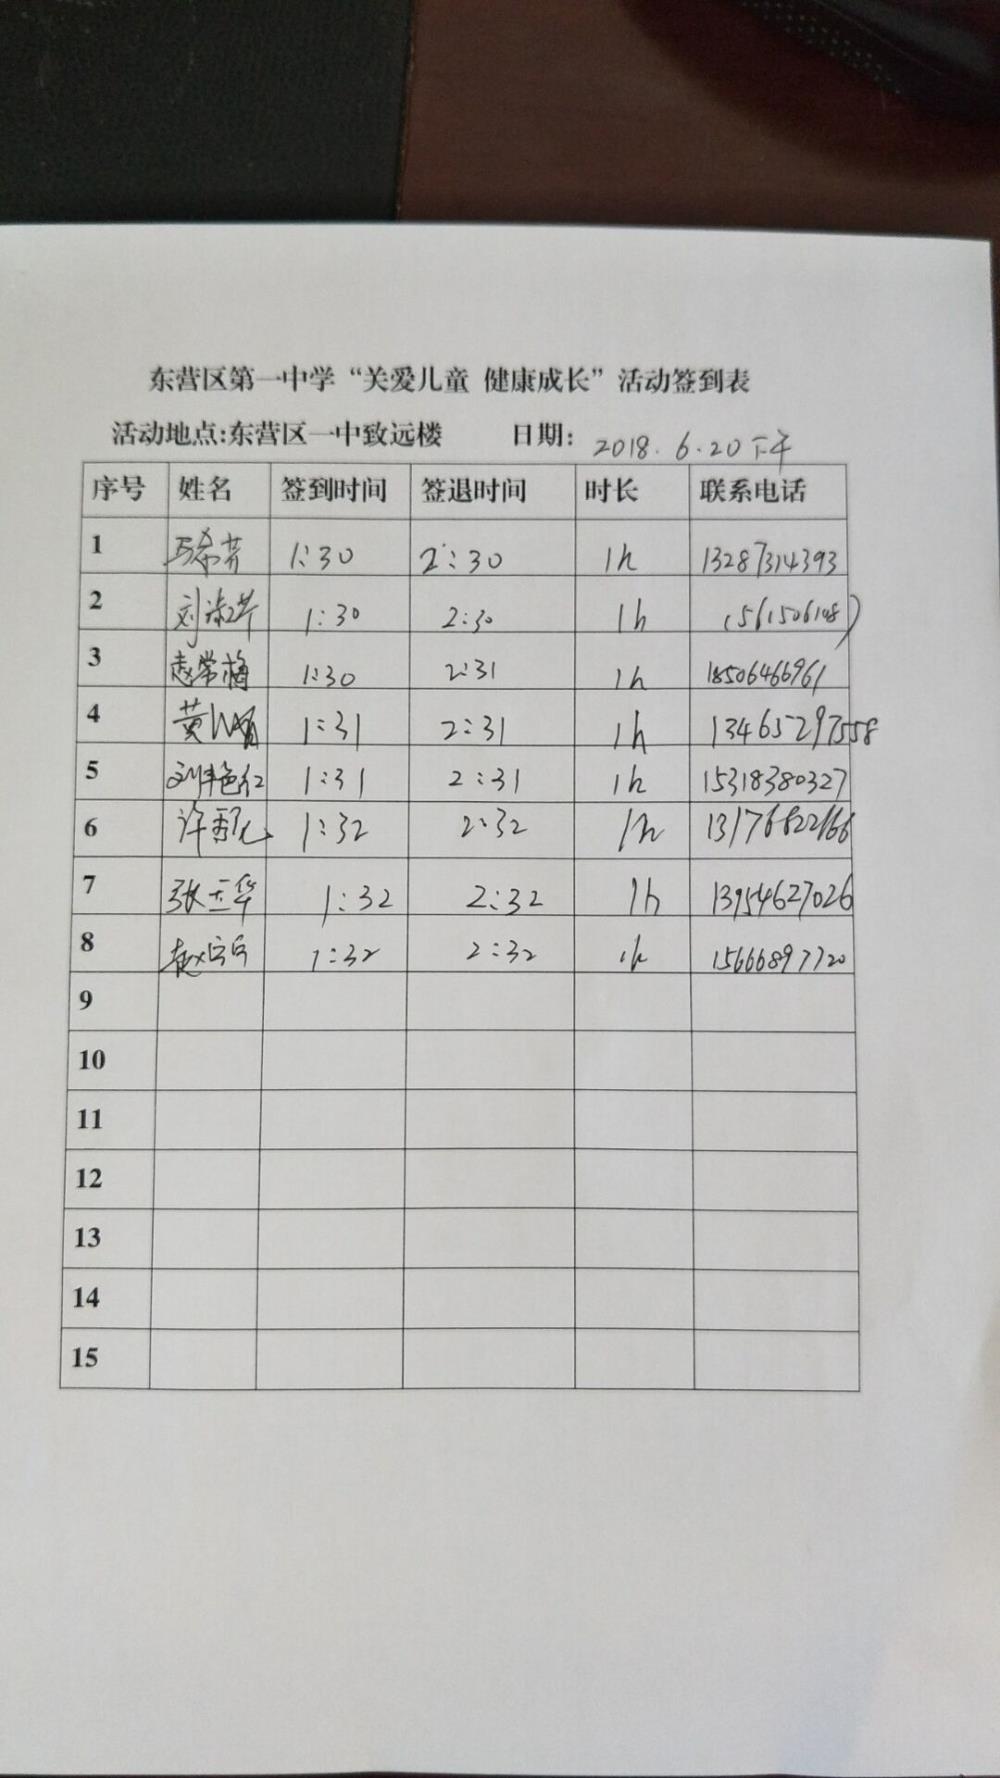 东营区第一中学“关爱儿童 健康成长”活动签到表
活动地点:东营区一中致远楼 日期: 2018.6.20下午
序号 姓名 签到时间 签退时间 时长 联系电话
1 1:30 2:30 1h 13287314393
2 刘淑芹 1:30 2:30 1h
3 赵常梅 1:30 2:31 1h 18506466961
4 黄 1:31 2:31 1h 13465297558
5 刘艳红 1:31 2:31 1h 15318380327
6 许 1:32 2:32 1h 13176822166
7 张玉华 1:32 2:32 1h 13954627026
8 赵 1:32 2:32 1h 15666897720
9
10
11
12
13
14
15